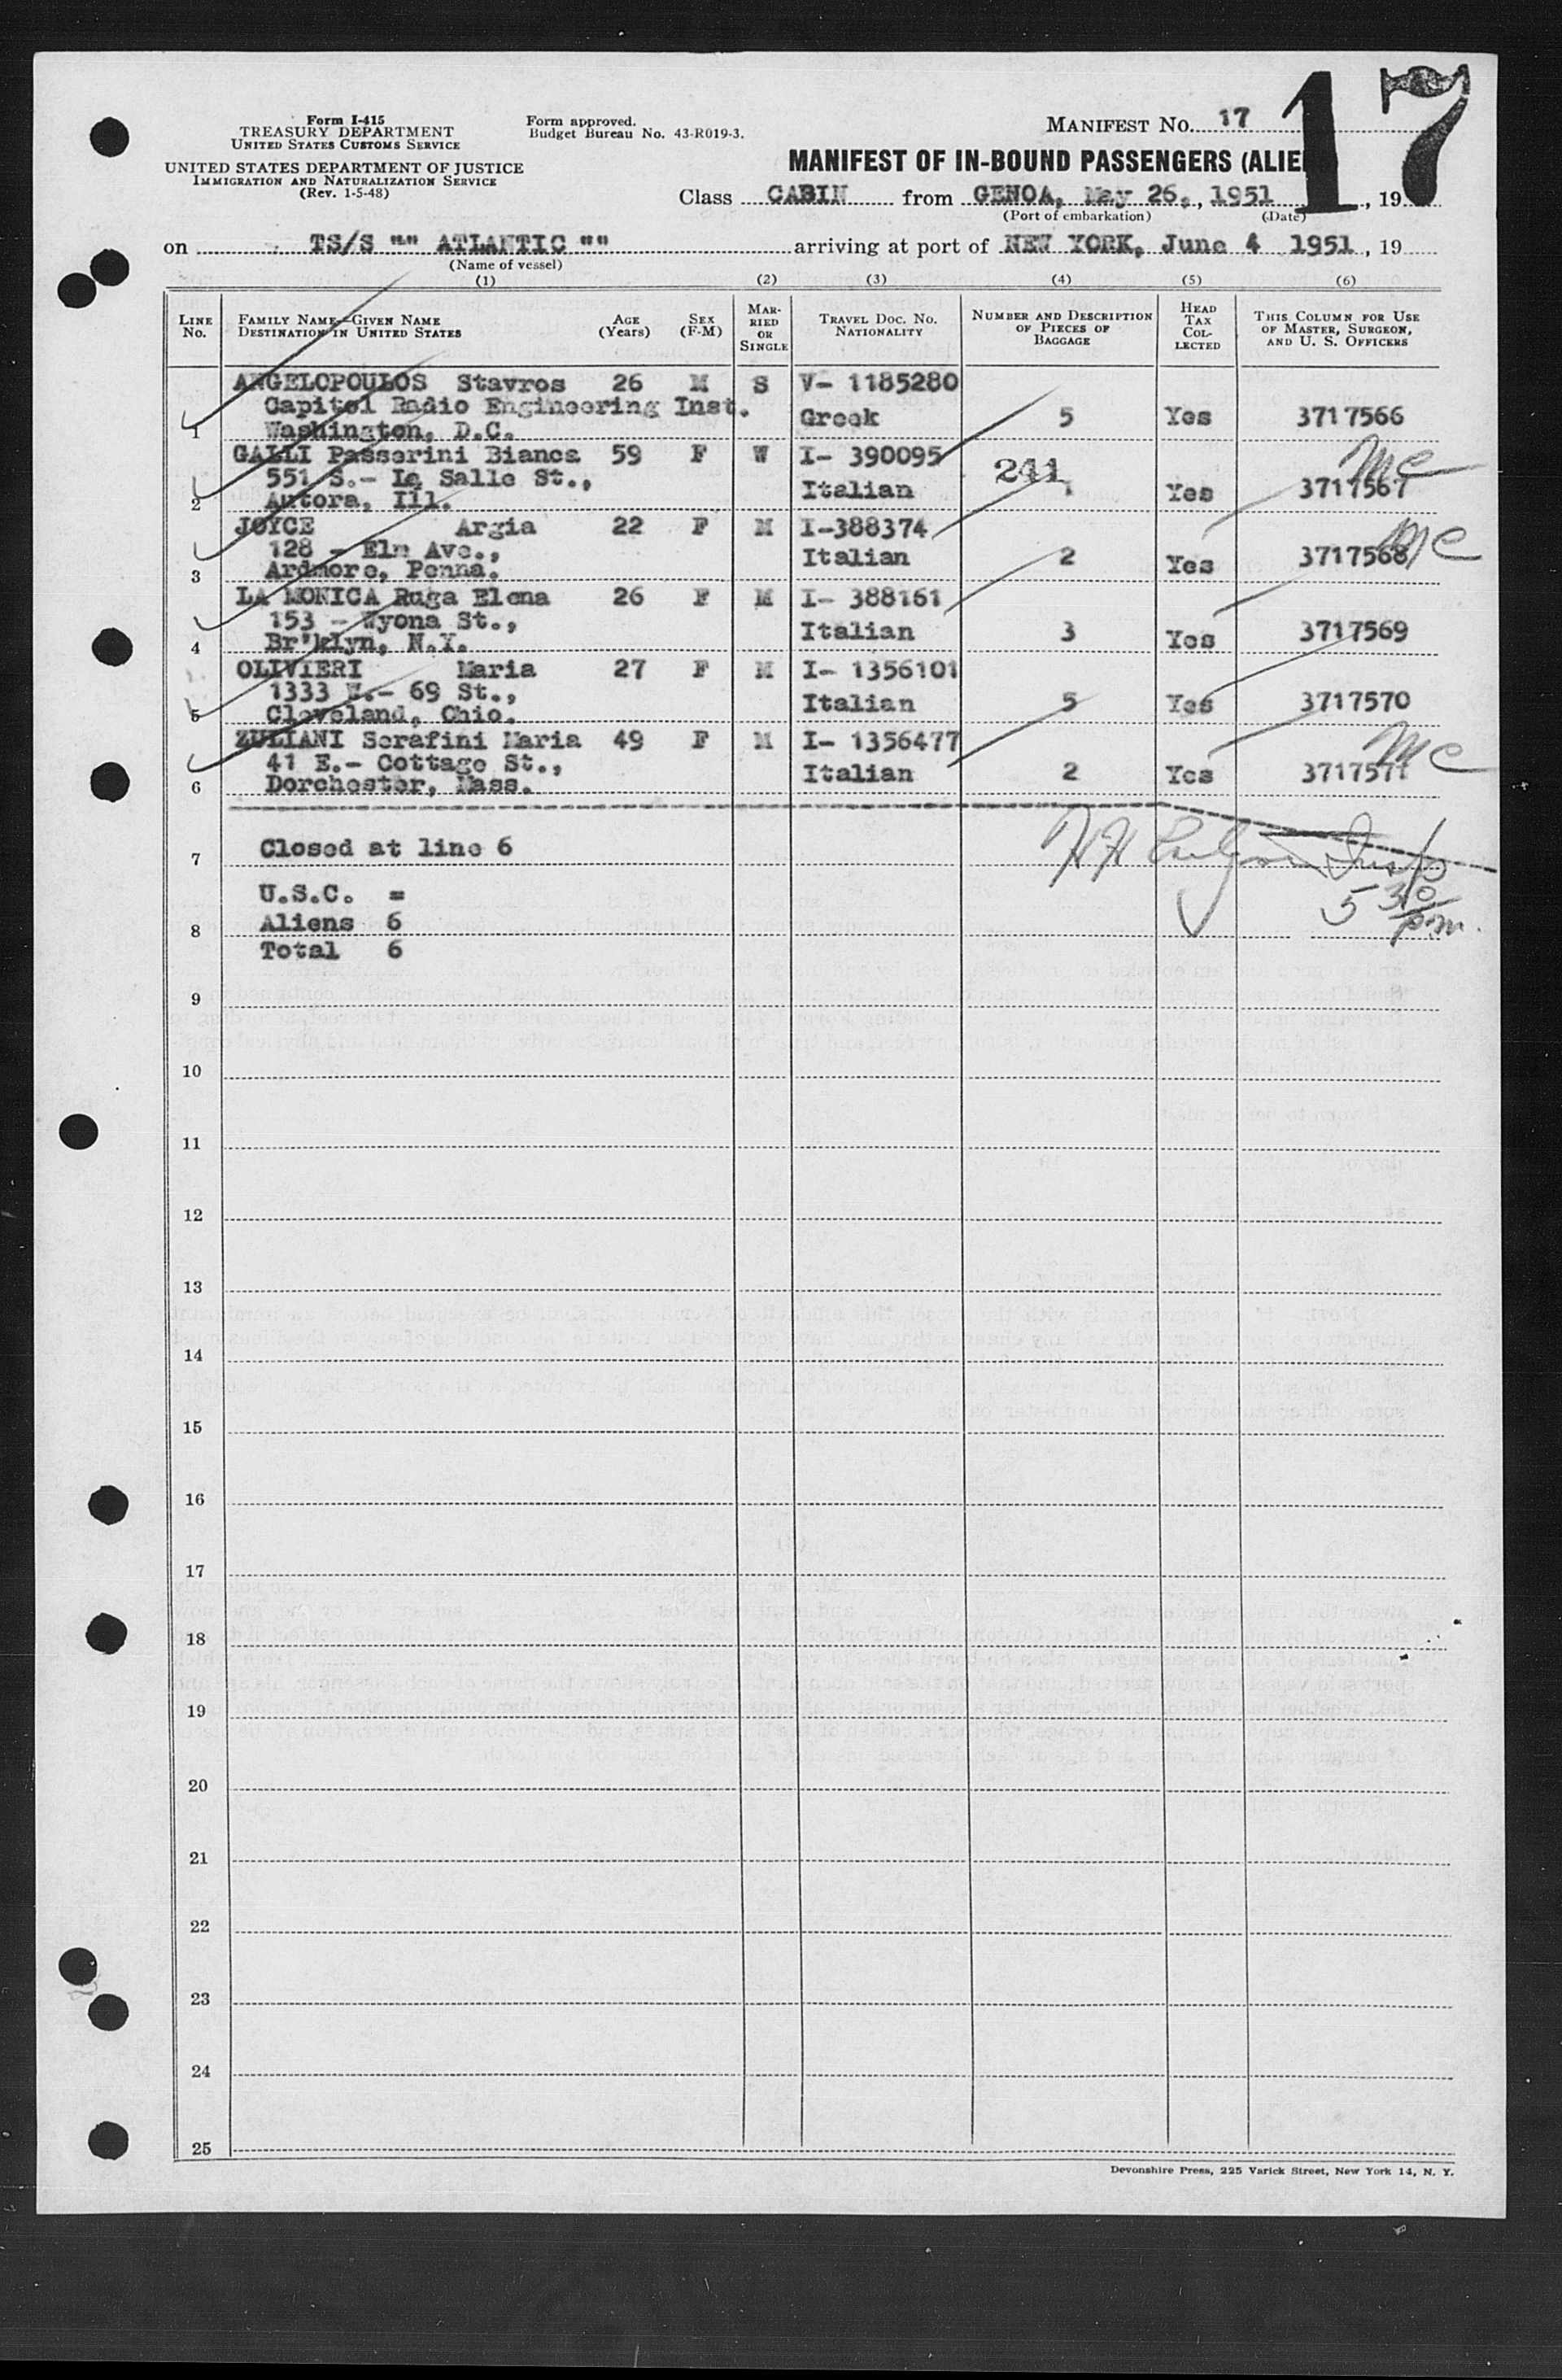 Form I-415
TREASURY DEPARTMENT
UNITED STATES CUSTOMS SERVICE
UNITED STATES DEPARTMENT OF JUSTICE
IMMIGRATION AND NATURALIZATION SERVICE
(Rev. 1-5-48)
Form approved.
Budget Bureau No. 43-R019-3.
MANIFEST No. 17
17
MANIFEST OF IN-BOUND PASSENGERS (ALIE
Class CABIN from GENOA, May 26, , 1951 , 19
(Port of embarkation) (Date)
on TS/S "" ATLANTIC "" arriving at port of NEW YORK, June 4 1951 , 19
(Name of vessel)
(1) (2) (3) (4) (5) (6)
LINE No.
FAMILY NAME—GIVEN NAME
DESTINATION IN UNITED STATES
AGE (Years)
SEX (F-M)
MARRIED OR SINGLE
TRAVEL DOC. NO.
NATIONALITY
NUMBER AND DESCRIPTION OF PIECES OF BAGGAGE
HEAD TAX COLLECTED
THIS COLUMN FOR USE OF MASTER, SURGEON, AND U. S. OFFICERS
ANGELOPOULOS Stavros 26 M S V- 1185280
Capitol Radio Engineering Inst. Greek 5 Yes 3717566
1 Washington, D.C.
GALLI Passerini Bianca 59 F W I- 390095 241 Mc
551 S.- La Salle St., Italian 1 Yes 3717567
2 Autora, Ill.
JOYCE Argia 22 F M I-388374 Mc
128 - Elm Ave., Italian 2 Yes 3717568
3 Ardmore, Penna.
LA MONICA Ruga Elena 26 F M I- 388161
153 - Wyona St., Italian 3 Yes 3717569
4 Br'klyn, N.Y.
OLIVIERI Maria 27 F M I- 1356101
1333 W.- 69 St., Italian 5 Yes 3717570
5 Cleveland, Ohio.
ZULIANI Serafini Maria 49 F M I- 1356477 Mc
41 E.- Cottage St., Italian 2 Yes 3717571
6 Dorchester, Mass.
7 Closed at line 6
Insp
U.S.C. =
5 30 pm.
8 Aliens 6
Total 6
9
10
11
12
13
14
15
16
17
18
19
20
21
22
23
24
25
Devonshire Press, 225 Varick Street, New York 14, N. Y.